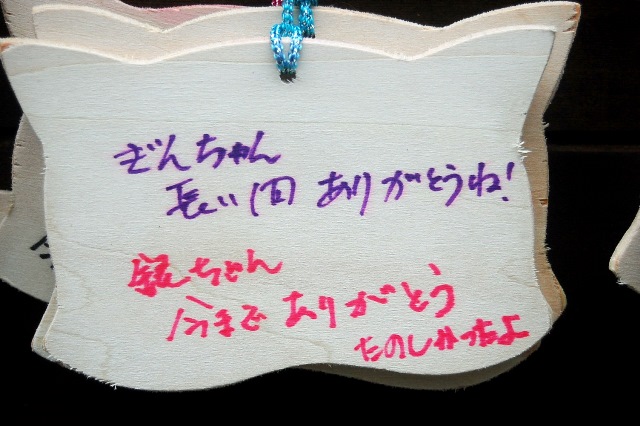 ぎんちゃん
長い間 ありがとうね!
銀ちゃん
今まで ありがとう
たのしかったよ